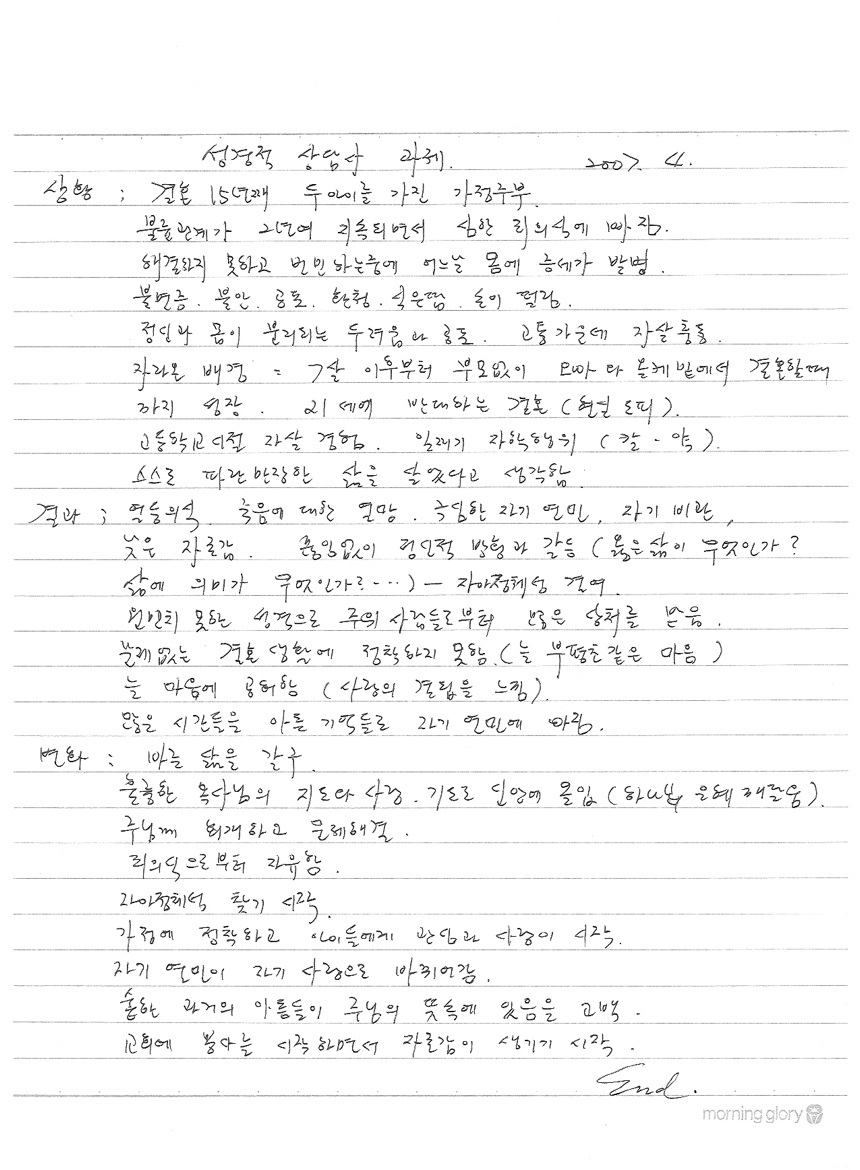 성경적 상담사 과제. 2007. 4.
상황 ; 결혼 15년째 두 아이를 가진 가정주부.
불륜관계가 2년여 지속되면서 심한 죄의식에 빠짐.
해결하지 못하고 번민하는중에 어느날 몸에 증세가 발병.
불면증. 불안. 공포. 환청. 식은땀. 손이 떨림.
정신과 몸이 분리되는 두려움과 공포. 고통가운데 자살충동.
자라온 배경 = 7살 이후부터 부모없이 오빠와 올케밑에서 결혼할때
까지 성장. 21세에 반대하는 결혼 (현실 도피).
고등학교시절 자살 경험. 일래기 자학행위 (칼 - 약).
스스로 파란만장한 삶을 살았다고 생각함.
결과 ; 열등의식. 죽음에 대한 열망. 극심한 자기 연민. 자기 비관,
낮은 자존감. 끊임없이 정신적 방황과 갈등 (옳은 삶이 무엇인가?
삶에 의미가 무엇인가?....) - 자아정체성 결여.
원만치 못한 성격으로 주위 사람들로부터 많은 상처를 받음.
문제없는 결혼 생활에 정착하지 못함. (늘 부평초같은 마음)
늘 마음에 공허함 (사랑의 결핍을 느낌).
많은 시간들을 아픈 기억들로 자기 연민에 빠짐.
변화 : 바른 삶을 갈구.
훌륭한 목사님의 지도와 사랑. 기도로 신앙에 몰입 (하나님 은혜 깨달음).
주님께 회개하고 문제해결.
죄의식으로부터 자유함.
자아정체성 찾기 시작.
가정에 정착하고 아이들에게 관심과 사랑이 시작.
자기 연민이 자기 사랑으로 바뀌어감.
또한 과거의 아픔들이 주님의 뜻속에 있음을 고백.
교회에 봉사를 시작하면서 자존감이 생기기 시작.
End.
morning glory